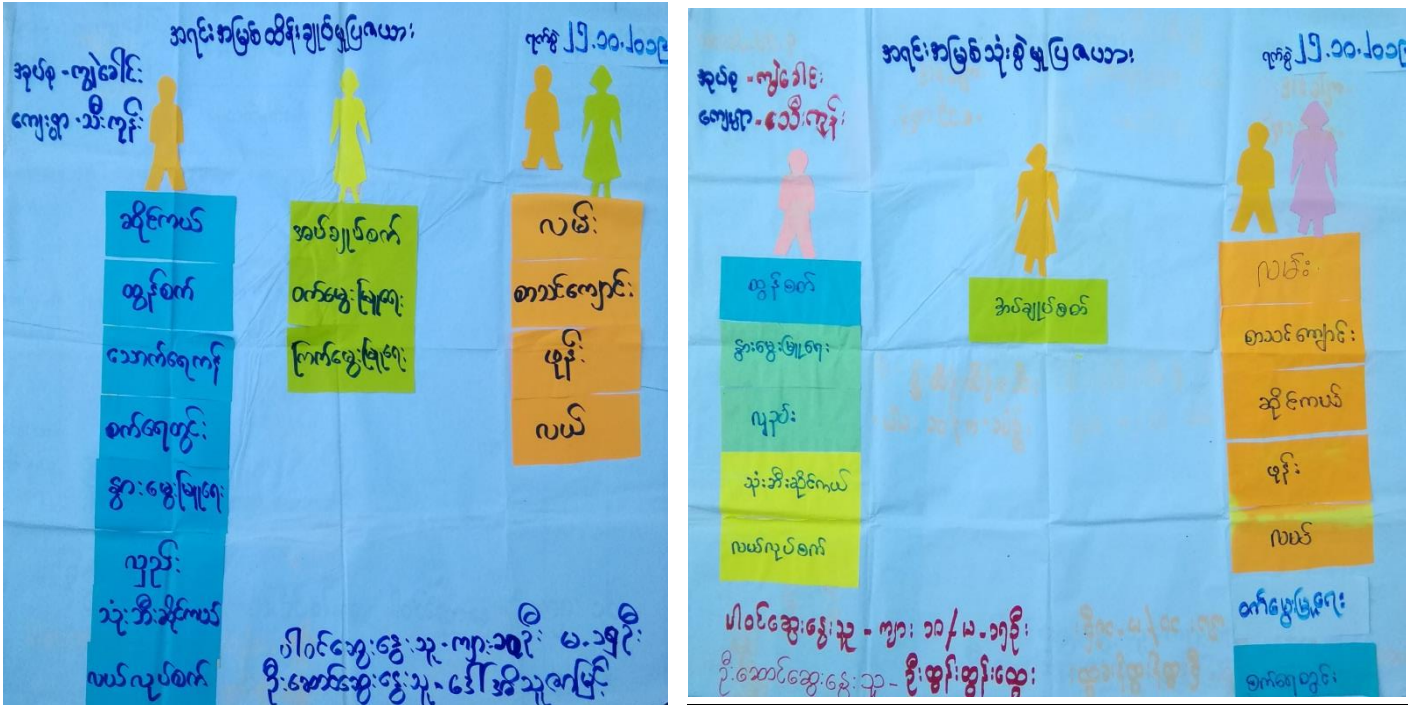 အရင်းအမြစ်ထိန်းချုပ်မှုပြဇယား
ရက်စွဲ ၂၅.၁၀.၂၀၁၉
အုပ်စု - ကျွဲခေါင်း
ကျေးရွာ - သီးကုန်း
ဆိုင်ကယ်
ထွန်စက်
သောက်ရေကန်
စက်ရေတွင်း
နွားမွေးမြူရေး
လှည်း
သုံးဘီးဆိုင်ကယ်
လယ်လုပ်စက်
အပ်ချုပ်စက်
ဝက်မွေးမြူရေး
ကြက်မွေးမြူရေး
လမ်း
စာသင်ကျောင်း
ဖုန်း
လယ်
ပါဝင်ဆွေးနွေးသူ - ကျား ၁၀ဦး မ - ၁၅ဦး
ဦးဆောင်ဆွေးနွေးသူ - ဒေါ်အိသူဇာမြင့်
အရင်းအမြစ်သုံးစွဲမှုပြဇယား
ရက်စွဲ ၂၅.၁၀.၂၀၁၉
အုပ်စု - ကျွဲခေါင်း
ကျေးရွာ - သီးကုန်း
ထွန်စက်
နွားမွေးမြူရေး
လှည်း
သုံးဘီးဆိုင်ကယ်
လယ်လုပ်စက်
အပ်ချုပ်စက်
လမ်း
စာသင်ကျောင်း
ဆိုင်ကယ်
ဖုန်း
လယ်
ဝက်မွေးမြူရေး
စက်ရေတွင်း
ပါဝင်ဆွေးနွေးသူ - ကျား ၁၀/မ - ၁၅ဦး
ဦးဆောင်ဆွေးနွေးသူ - ဦးထွန်းထွန်းထွေး